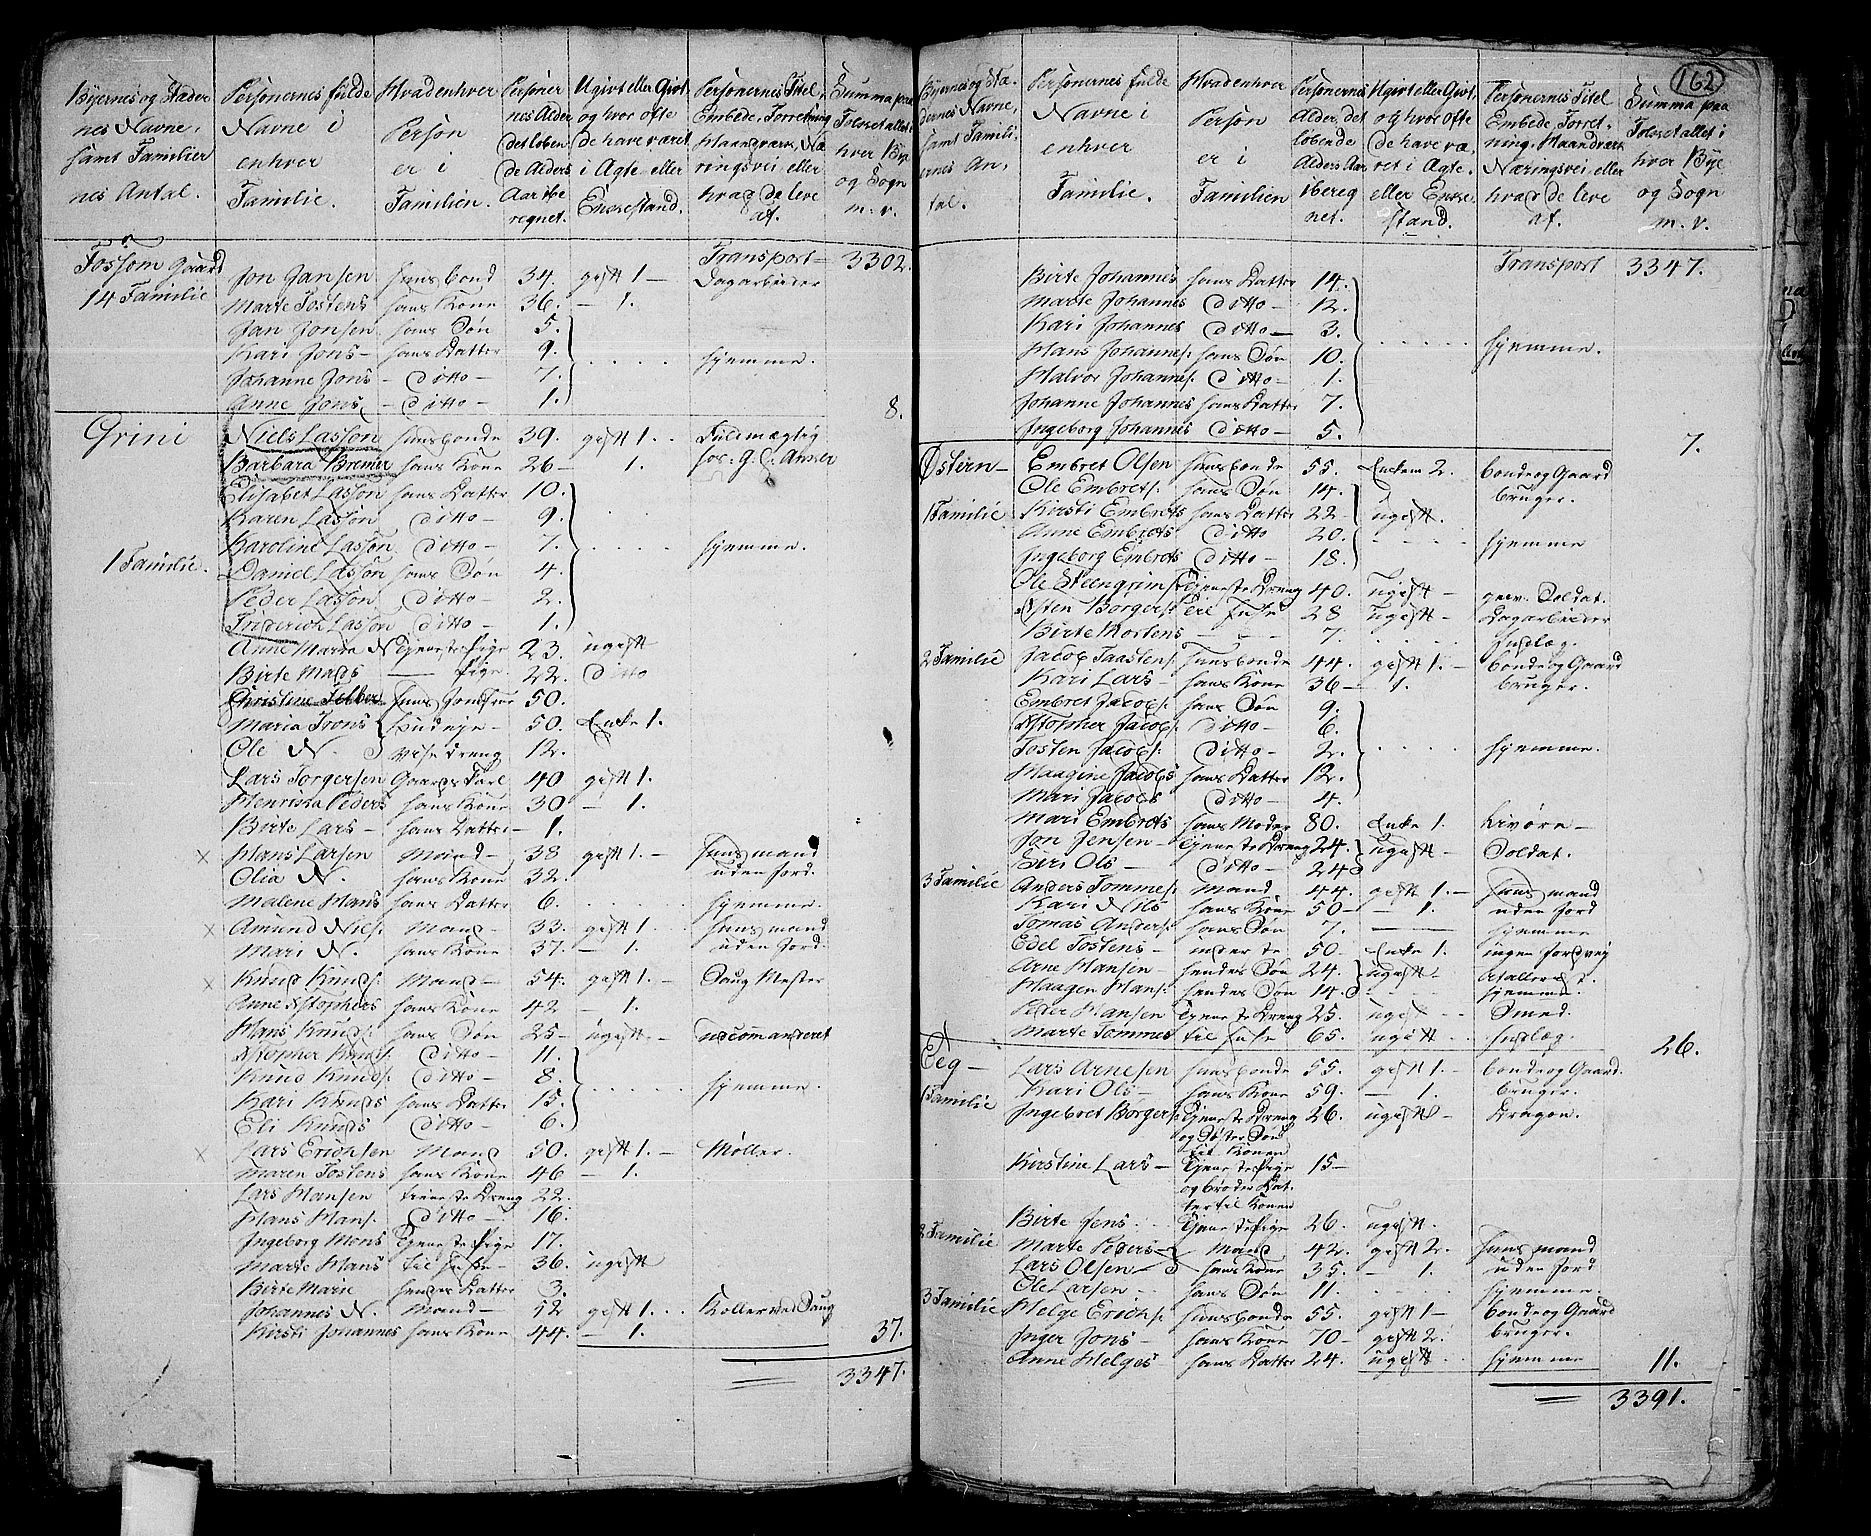 162
Byernes og Stæder
nes Navne,
samt Familier
nes Antal.
Personernes fulde
Navne i
enhver
Familie.
Hvad enhver
Person
er i
Familien.
Personer
nes Alder
det løben
de Alders
Aar ibe
regnet.
Ugivt eller Givt,
og hvor ofte
de have været
i Ægte eller
Enkestand.
Personernes Titel,
Embede, Forretning
Haandværk, Næ
ringsvei eller
hvad de leve
af.
Summa paa
Folketallet i
hver Bye
og Sogn
m. v.
Transport — 3302.
Fossom Gaard Jon Jansen husbond 34. gift 1 — Dagarbeider
14 Familie Marte Tostens hans Kone 36. — 1.
Jan Jonsen hans Søn 5.
Kari Jons — hans Datter 9.
Johanne Jons — Ditto — 7. hjemme.
Anne Jons — Ditto — 1. 8.
Grini Niels Lasson husbonde 39. gift 1. Fuldmægtig
Barbara Bremer hans Kone 26 — 1. hos G. C. Anker
Elisabet Lasson hans Datter 10.
Karen Lasson Ditto — 9.
Karoline Lasson Ditto — 7. hjemme.
1 Familie. Daniel Lasson hans Søn 4.
Peder Lasson Ditto — 2.
Friderich Lasson Ditto — 1.
Anne Marie N Tjeneste Pige 23. ugift
Birte Mads — Pige 22. Ditto
Christine Felber huus Jomfrue 50.
Maria Trons 50. Enke 1.
Ole N. 12.
Lars Torgersen Gaards Karl 40 gift 1.
Henricka Peders hans Kone 30 — 1.
Birte Lars — hans Datter — 1.
x Hans Larsen Mand — 38 gift 1. — huusmand
Olia N. hans Kone 32. uden Jord.
Malene Hans hans Datter 6. hjemme.
x Amund Niels. Mand — 33. gift 1. huusmand
Mari N. hans Kone 37. — 1. uden Jord.
x Knud Knuds. Mand — 54. gift 1. — Saug Mester
Anne Xstophers hans Kone 42 — 1.
Hans Knuds. hans Søn 25 — ugift
Xstopher Knuds. Ditto — 11.
Knud Knuds. Ditto — 8. hjemme.
Kari Knuds hans Datter 15.
Eli Knuds Ditto — 6.
x Lars Erichsen Mand 50. gift 1. — Møller.
Maren Tostens hans Kone 46 — 1.
Lars Hansen tieneste Dreng 22.
Hans Hans. Ditto — 16.
Ingeborg Mons Tjeneste Pige 17.
Marte Hans til huse — 36. ugift
Birte Marie hendes Datter 3.
Johannes N. Mand — 52 gift 1. Koller ved Saug
Kirsti Johannes hans Kone 44. — 1. 37.
3347.
Byernes og Stæ-
dernes Navne,
samt Famili-
ernes An-
tal.
Personernes fulde
Navne i
enhver
Familie.
Hvad enhver
Person
er i
Familien
Personernes
Alder, det
løbende
Alders Aar
ibereg
net.
Ugivt eller Givt,
og hvor ofte
de have væ,
ret i Ægte,
eller Enke,
stand.
Personernes Titel
Embede, Forret-
ning, Haandværk
Næringsvei eller
hvad de leve
af.
Summa paa
Folketallet i
hver Bye
og Sogn
m. v.
Transport 3347.
Birte Johannes hans Datter 14.
Marte Johannes Ditto — 12.
Kari Johannes Ditto — 3.
Hans Johannes. hans Søn 10. hjemme.
Halvor Johannes. Ditto — 1.
Johanne Johannes hans Datter 7.
Ingeborg Johannes Ditto — 5. 7.
Østern — Embret Olsen husbonde 55. Enkem 2. bonde og Gaard
Ole Embrets. hans Søn 14. bruger.
1 Familie Kirsti Embrets hans Datter 22. ugift.
Anne Embrets Ditto 20. hjemme
Ingeborg Embrets Ditto — 18.
Ole Steengrims. Tjeneste Dreng 40. ugift — gev. Soldat.
Østen Borgers. til huse 28 ugift — Dagarbeider
Birte Mortens — 7. Indlæg.
2 Familie Jacob Taastens. husbonde 44. gift 1. — bonde og Gaard
Kari Lars — hans Kone 36 — 1. bruger.
Embret Jacobs. hans Søn 9.
Xstopher Jacobs. Ditto — 6.
Tosten Jacobs. Ditto — 2. hjemme.
Haagine Jacobs hans Datter 12.
Mari Jacobs Ditto — 4.
Mari Embrets hans Moder 80. Enke 1. Livøre —
Jon Jensen — Tjeneste Dreng 24. ugift — Soldat.
Ols — Ditto — 24
3 Familie Anders Tommes. Mand 44. gift 1. — huusmand
Kari Nils hans Kone 50 — — 1. uden Jord
Tomas Anders. hans Søn 7. — hjemme
Edel Tostens — inderste 50. Enke 1. ingen Jordvej
Arne Hansen hendes Søn 24. ugift
Haagen Hans. hendes Søn 14. hjemme.
Peder Hansen Tjeneste Dreng 25. ugift Smed.
Marte Tommes til huse 65. ugift Indlæg. 26.
Eeg — Lars Arnesen husbonde 55. gift 1. — bonde og Gaard
Kari Ols — hans Kone 59. — 1. bruger.
1 Familie Ingebret Borgers. Tjeneste Dreng 26. ugift — Dragon.
og Søster Søn
til Konen
Kirstine Lars — Tjeneste Pige 15 —
og broder Dat.
ter til Konen
Birte Jens. Tjeneste Pige 26. ugift.
2 Familie Marte Peders — Mand 42. gift 2. huusmand
Lars Olsen — hans Kone 35. — 1. uden Jord
Ole Larsen. hans Søn 11. hjemme.
3 Familie Helge Erichs. husbonde 55. gift 1 — bonde og Gaard
Inger Jons — hans Kone 70 — gift 2. bruger.
Anne Helges hans Datter 24. ugift hjemme 11.
3391.